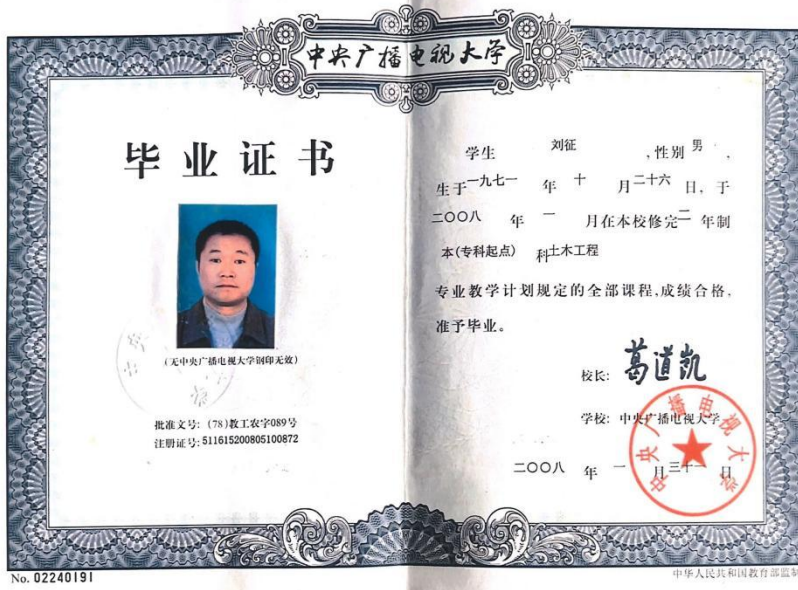 中央广播电视大学
毕业证书
(无中央广播电视大学钢印无效)
批准文号: (78)教工农字089号
注册证号: 511615200805100872
No. 02240191
学生 刘征 ,性别 男 ,
生于 一九七一 年 十 月 二十六 日, 于
二〇〇八 年 一 月在本校修完 二 年制
本(专科起点) 科 土木工程
专业教学计划规定的全部课程,成绩合格,
准予毕业。
校长: 葛道凯
学校: 中央广播电视大学
中央广播电视大学
二〇〇八 年 一 月 三十一 日
中华人民共和国教育部监制